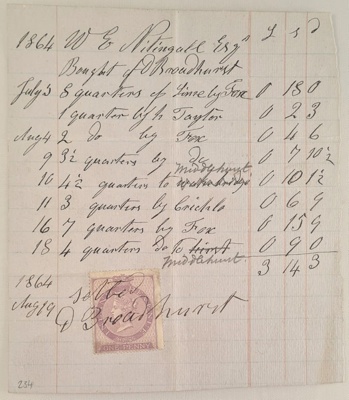 1864 W E Nitingale Esqr £ s d
Bought of D Broadhurst
July 3 8 quarters of Lime by Fox 0 18 0
1 quarter by h Taylor 0 2 3
Aug 4 2 do by Fox 0 4 6
9 3½ quarters by Do 0 7 10½
Middlehurst
10 4½ quarters to 0 10 1½
11 3 quarters by Crichlo 0 6 9
16 7 quarters by Fox 0 15 9
18 4 quarters Do to hirst 0 9 0
Middlehurst 3 14 3
1864
Aug 19 settled
D Broadhurst
234